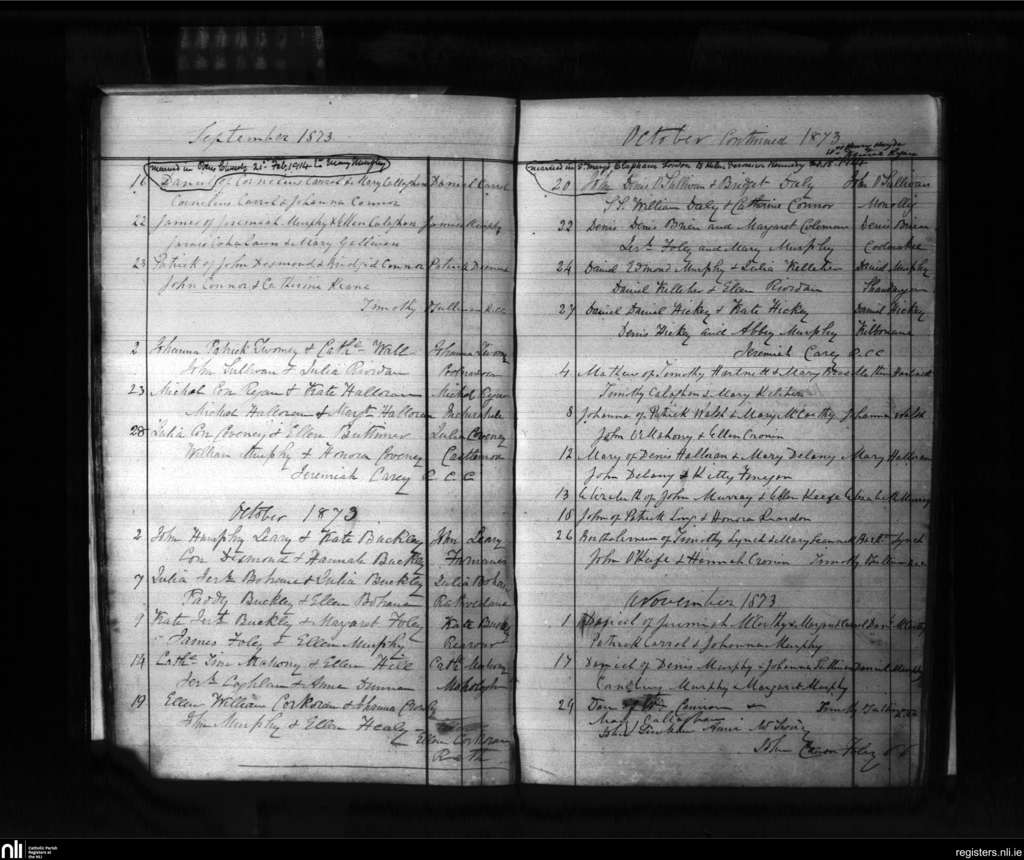 September 1873
married in Paris Church 21st Feb. 1914 to Mary Murphy
16 Daniel of Cornelius Carrol & Mary Callaghan Daniel Carrol
Cornelius Carrol & Johanna Connor
22 James of Jeremiah Murphy & Ellen Calaghan James Murphy
James & Mary
23 Patrick of John Desmond & Bridgid Connor Patrick Desmond
John Connor & Catherine Keane
Timothy O'Sullivan R.C.C.
2 Johanna Patrick Twomey & Cathe Wall Johanna Twomey
John Sullivan & Julia Riordan
23 Michal Con Ryan & Kate Halloran Michal Ryan
Michal Halloran & Margt Halloran
28 Julia Con Coveney & Ellen Buttimer Julia Coveney
William Murphy & Honora Coveney
Jeremiah Carey C.C.C.
October 1873
2 John Humphy Leary & Kate Buckley John Leary
Con Desmond & Hannah Buckley
7 Julia Jerh Bohane & Julia Buckley Julia Bohane
Paddy Buckley & Ellen Bohane
9 Kate Jerh Buckley & Margaret Foley Kate Buckley
James Foley & Ellen Murphy Rearour
14 Cathe Tim Mahony & Ellen Hill Cath Mahony
Jerh Coghlan &
19 Ellen William Corkoran & Johanna Crowly
John Murphy & Ellen Healy
Ellen Corkoran
October Continued 1873
married in St Mary's Clapham London to Helen Veronica Kennedy
20 John Denis O'Sullivan & Bridget Daly John O'Sullivan
William Daly & Catherine Connor
22 Denis Denis Brien and Margaret Coleman Denis Brien
Jerh Foley and Mary Murphy
24 Daniel Edmond Murphy & Julia Kelleher Daniel Murphy
Daniel Kelleher & Ellen Riordan
27 Daniel Daniel Hickey & Kate Hickey Daniel Hickey
Denis Hickey and Abbey Murphy
Jeremiah Carey C.C.C.
4 Mathew of Timothy Hartnett & Mary
Timothy Calaghan & Mary Kelleher
8 Johanna of Patrick Wald & Mary McCarthy Johanna Wald
John O'Mahony & Ellen Cronin
12 Mary of Denis Halloran & Mary Delany Mary Halloran
John Delany & Kitty
13 Elizabeth of John Murray & Ellen Keefe Elizabeth Murray
18 John of Patrick Long & Honora Reardon
26 Bartholomew of Timothy Lynch & Mary Barth Lynch
John O'Keefe & Hannah Cronin Timothy
November 1873
1 Daniel of Jeremiah McCarthy & Margaret Carrol Danl McCarthy
Patrick Carrol & Johanna Murphy
17 Daniel of Denis Murphy & Johanna Sullivan Daniel Murphy
Cornelius Murphy & Margaret Murphy
29 Dan of Wm Connor Timothy
Mary Callaghan
John Annie
John Canon Foley P.P.
nli
Catholic Parish
Registers at
the NLI
registers.nli.ie